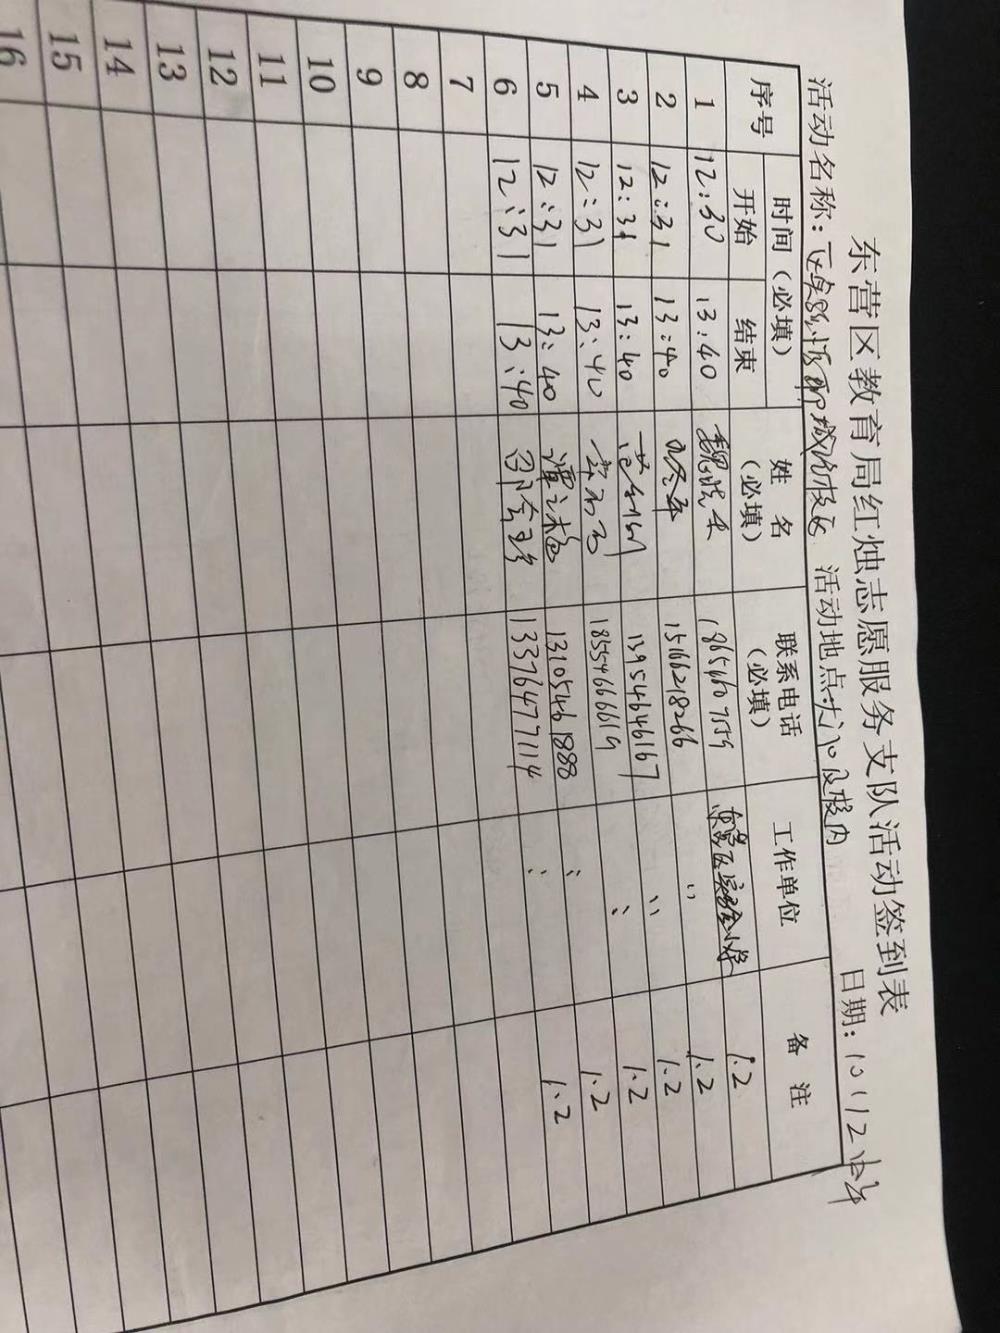 东营区教育局红烛志愿服务支队活动签到表
日期：10月12日
活动名称： 活动地点：大门口及校内
序号 时间（必填） 姓名（必填） 联系电话（必填） 工作单位 备注
开始 结束
1 12:30 13:40 魏晓 18654607559 东营区实验小学 1.2
2 12:31 13:40 15166218266 〃 1.2
3 12:31 13:40 13954646167 〃 1.2
4 12:31 13:40 18554666619 〃 1.2
5 12:31 13:40 谭 13105461888 〃 1.2
6 12:31 13:40 13376477114 〃 1.2
7
8
9
10
11
12
13
14
15
16